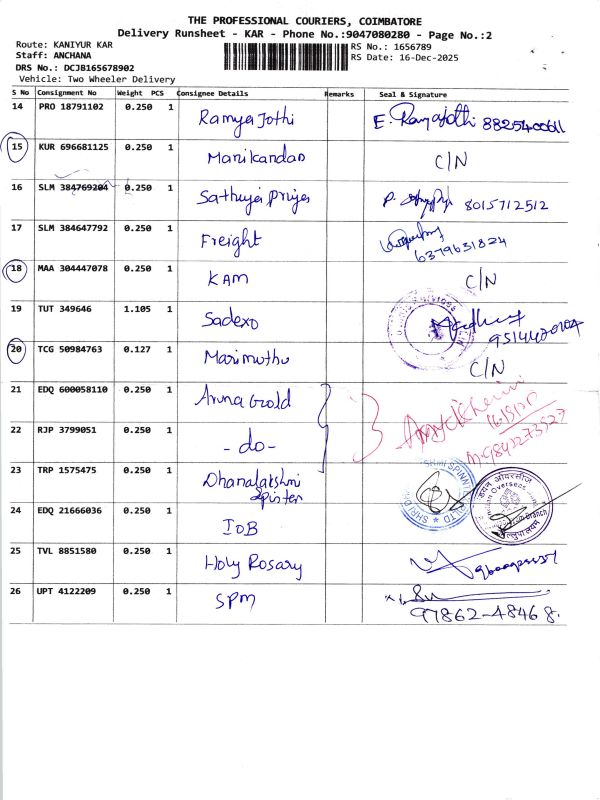 THE PROFESSIONAL COURIERS, COIMBATORE
Delivery Runsheet - KAR - Phone No.:9047080280 - Page No.:2
Route: KANIYUR KAR
RS No.: 1656789
Staff: ANCHANA
RS Date: 16-Dec-2025
DRS No.: DCJB165678902
Vehicle: Two Wheeler Delivery
S No Consignment No Weight PCS Consignee Details Remarks Seal & Signature
14 PRO 18791102 0.250 1 Ramya Jothi
15 KUR 696681125 0.250 1 Manikandan C/N
16 SLM 384769204 0.250 1 Sathyapriya 8015712512
17 SLM 384647792 0.250 1 Freight 6379631824
18 MAA 304447078 0.250 1 KAM C/N
19 TUT 349646 1.105 1 Sadexo
20 TCG 50984763 0.127 1 Marimuthu C/N
21 EDQ 600058110 0.250 1 Aruna Gold
22 RJP 3799051 0.250 1 - do -
23 TRP 1575475 0.250 1 Dhanalakshmi
24 EDQ 21666036 0.250 1 IOB
25 TVL 8851580 0.250 1 Holy Rosary
26 UPT 4122209 0.250 1 SPM 97862-48468.